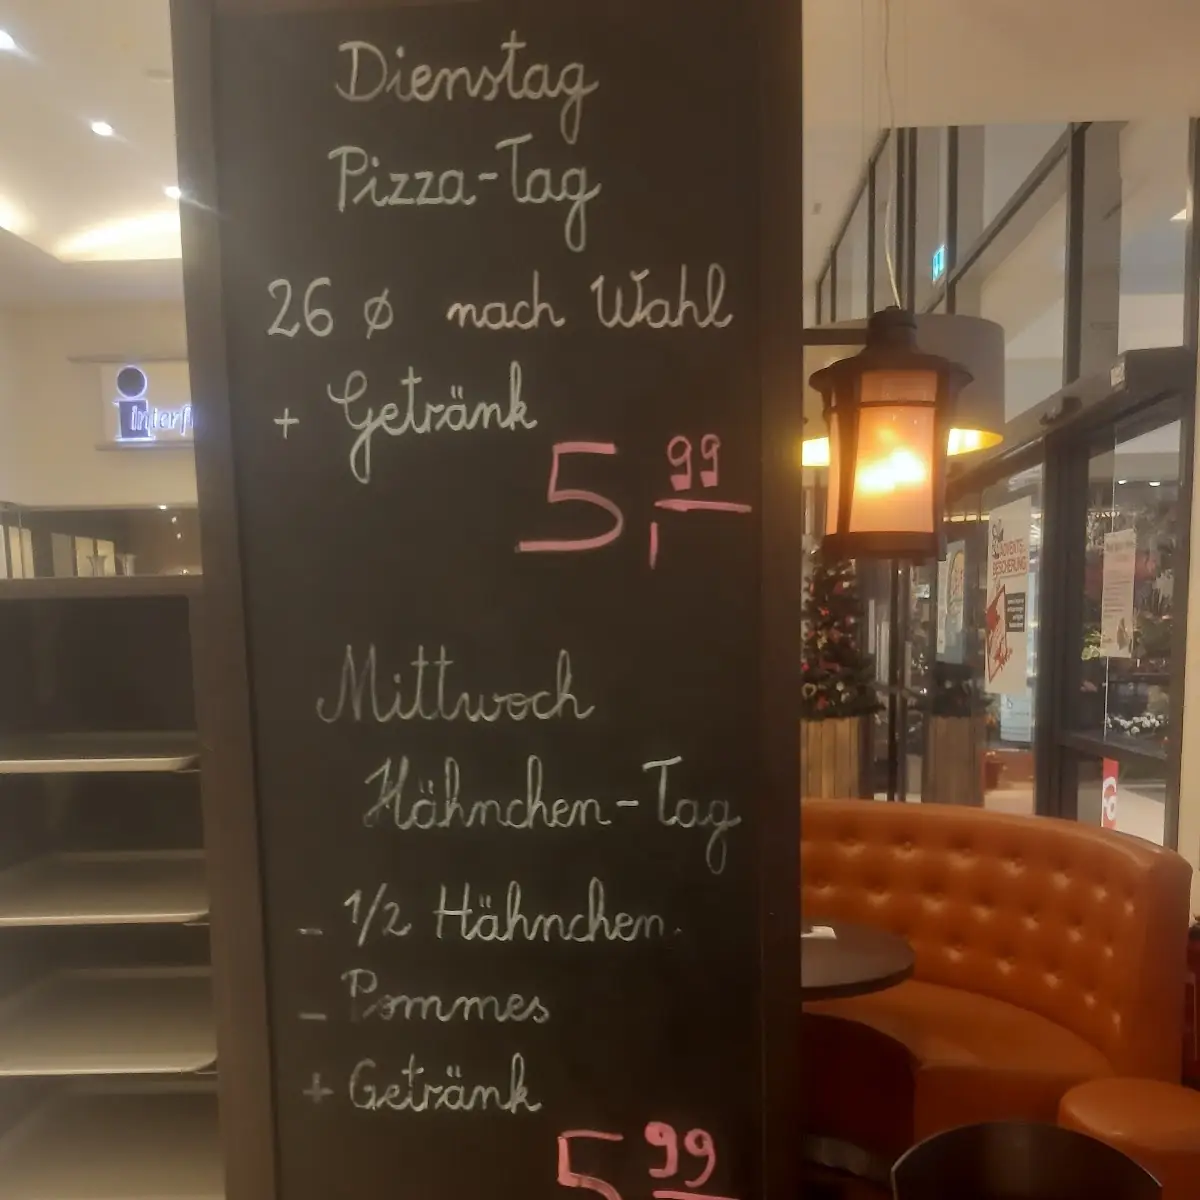 Dienstag
Pizza-Tag
26 ø nach Wahl
+ Getränk
5,99
Mittwoch
Hähnchen-Tag
- 1/2 Hähnchen
- Pommes
+ Getränk
5,99
ADVENTS-
BESCHERUNG